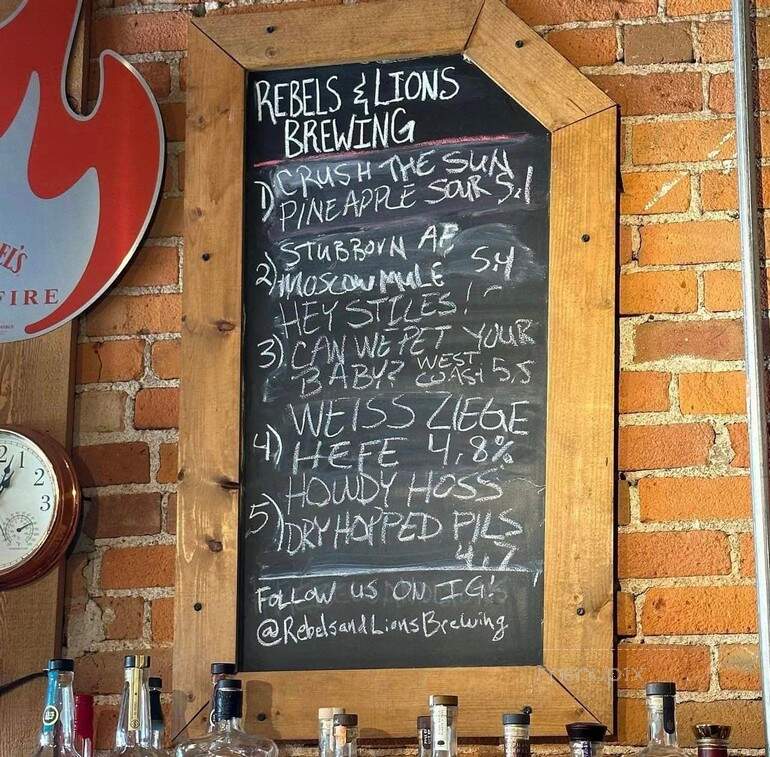 REBELS & LIONS
BREWING
1) CRUSH THE SUN
PINEAPPLE SOUR 5.1
2) STUBBORN AF
MOSCOW MULE 5.4
HEY STILES!
3) CAN WE PET YOUR
BABY? WEST COAST 5.5
WEISS ZIEGE
4) HEFE 4.8%
HOWDY HOSS
5) DRY HOPPED PILS
4.7
FOLLOW US ON IG!
@RebelsandLionsBrewing
EL'S
FIRE
12
1
2
3